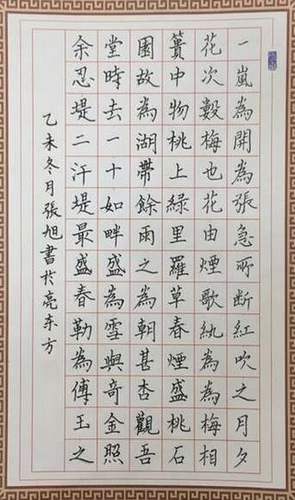 一嵐為開為張急所断紅吹之月夕
花次數梅也花由煙歌紈為為梅相
簣中物桃上綠里羅草春煙盛桃石
園故為湖帶餘雨之為朝甚杏觀吾
堂時去一十如畔盛為雪與奇金照
余忍堤二汗堤最盛春勒為傅玉之
乙未冬月張旭書於亮东方